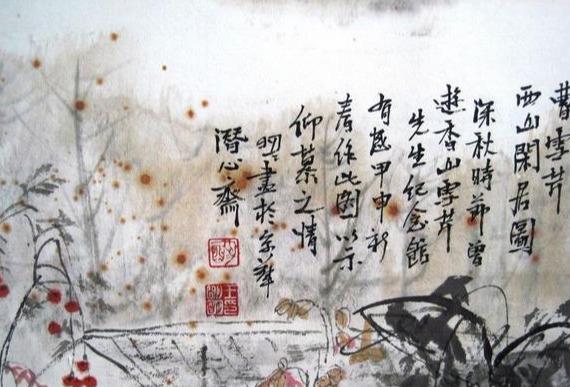 曹雪芹
西山閑居圖
深秋時節曾
遊香山雪芹
先生纪念館
有感甲申新
春作此圖以示
仰慕之情
明明畫於京華
潛心齋